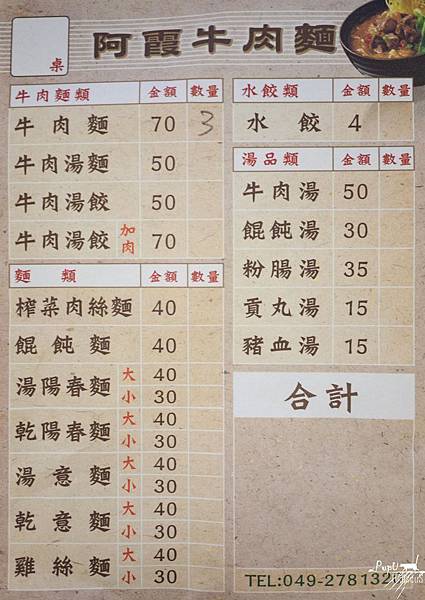 阿霞牛肉麵
桌
牛肉麵類 金額 數量
牛肉麵 70 3
牛肉湯麵 50
牛肉湯餃 50
牛肉湯餃 加肉 70
麵類 金額 數量
榨菜肉絲麵 40
餛飩麵 40
湯陽春麵 大 40
小 30
乾陽春麵 大 40
小 30
湯意麵 大 40
小 30
乾意麵 大 40
小 30
雞絲麵 大 40
小 30
水餃類 金額 數量
水餃 4
湯品類 金額 數量
牛肉湯 50
餛飩湯 30
粉腸湯 35
貢丸湯 15
豬血湯 15
合計
TEL:049-278132
PupU